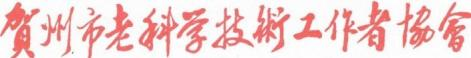 賀州市老科学技術工作者协會